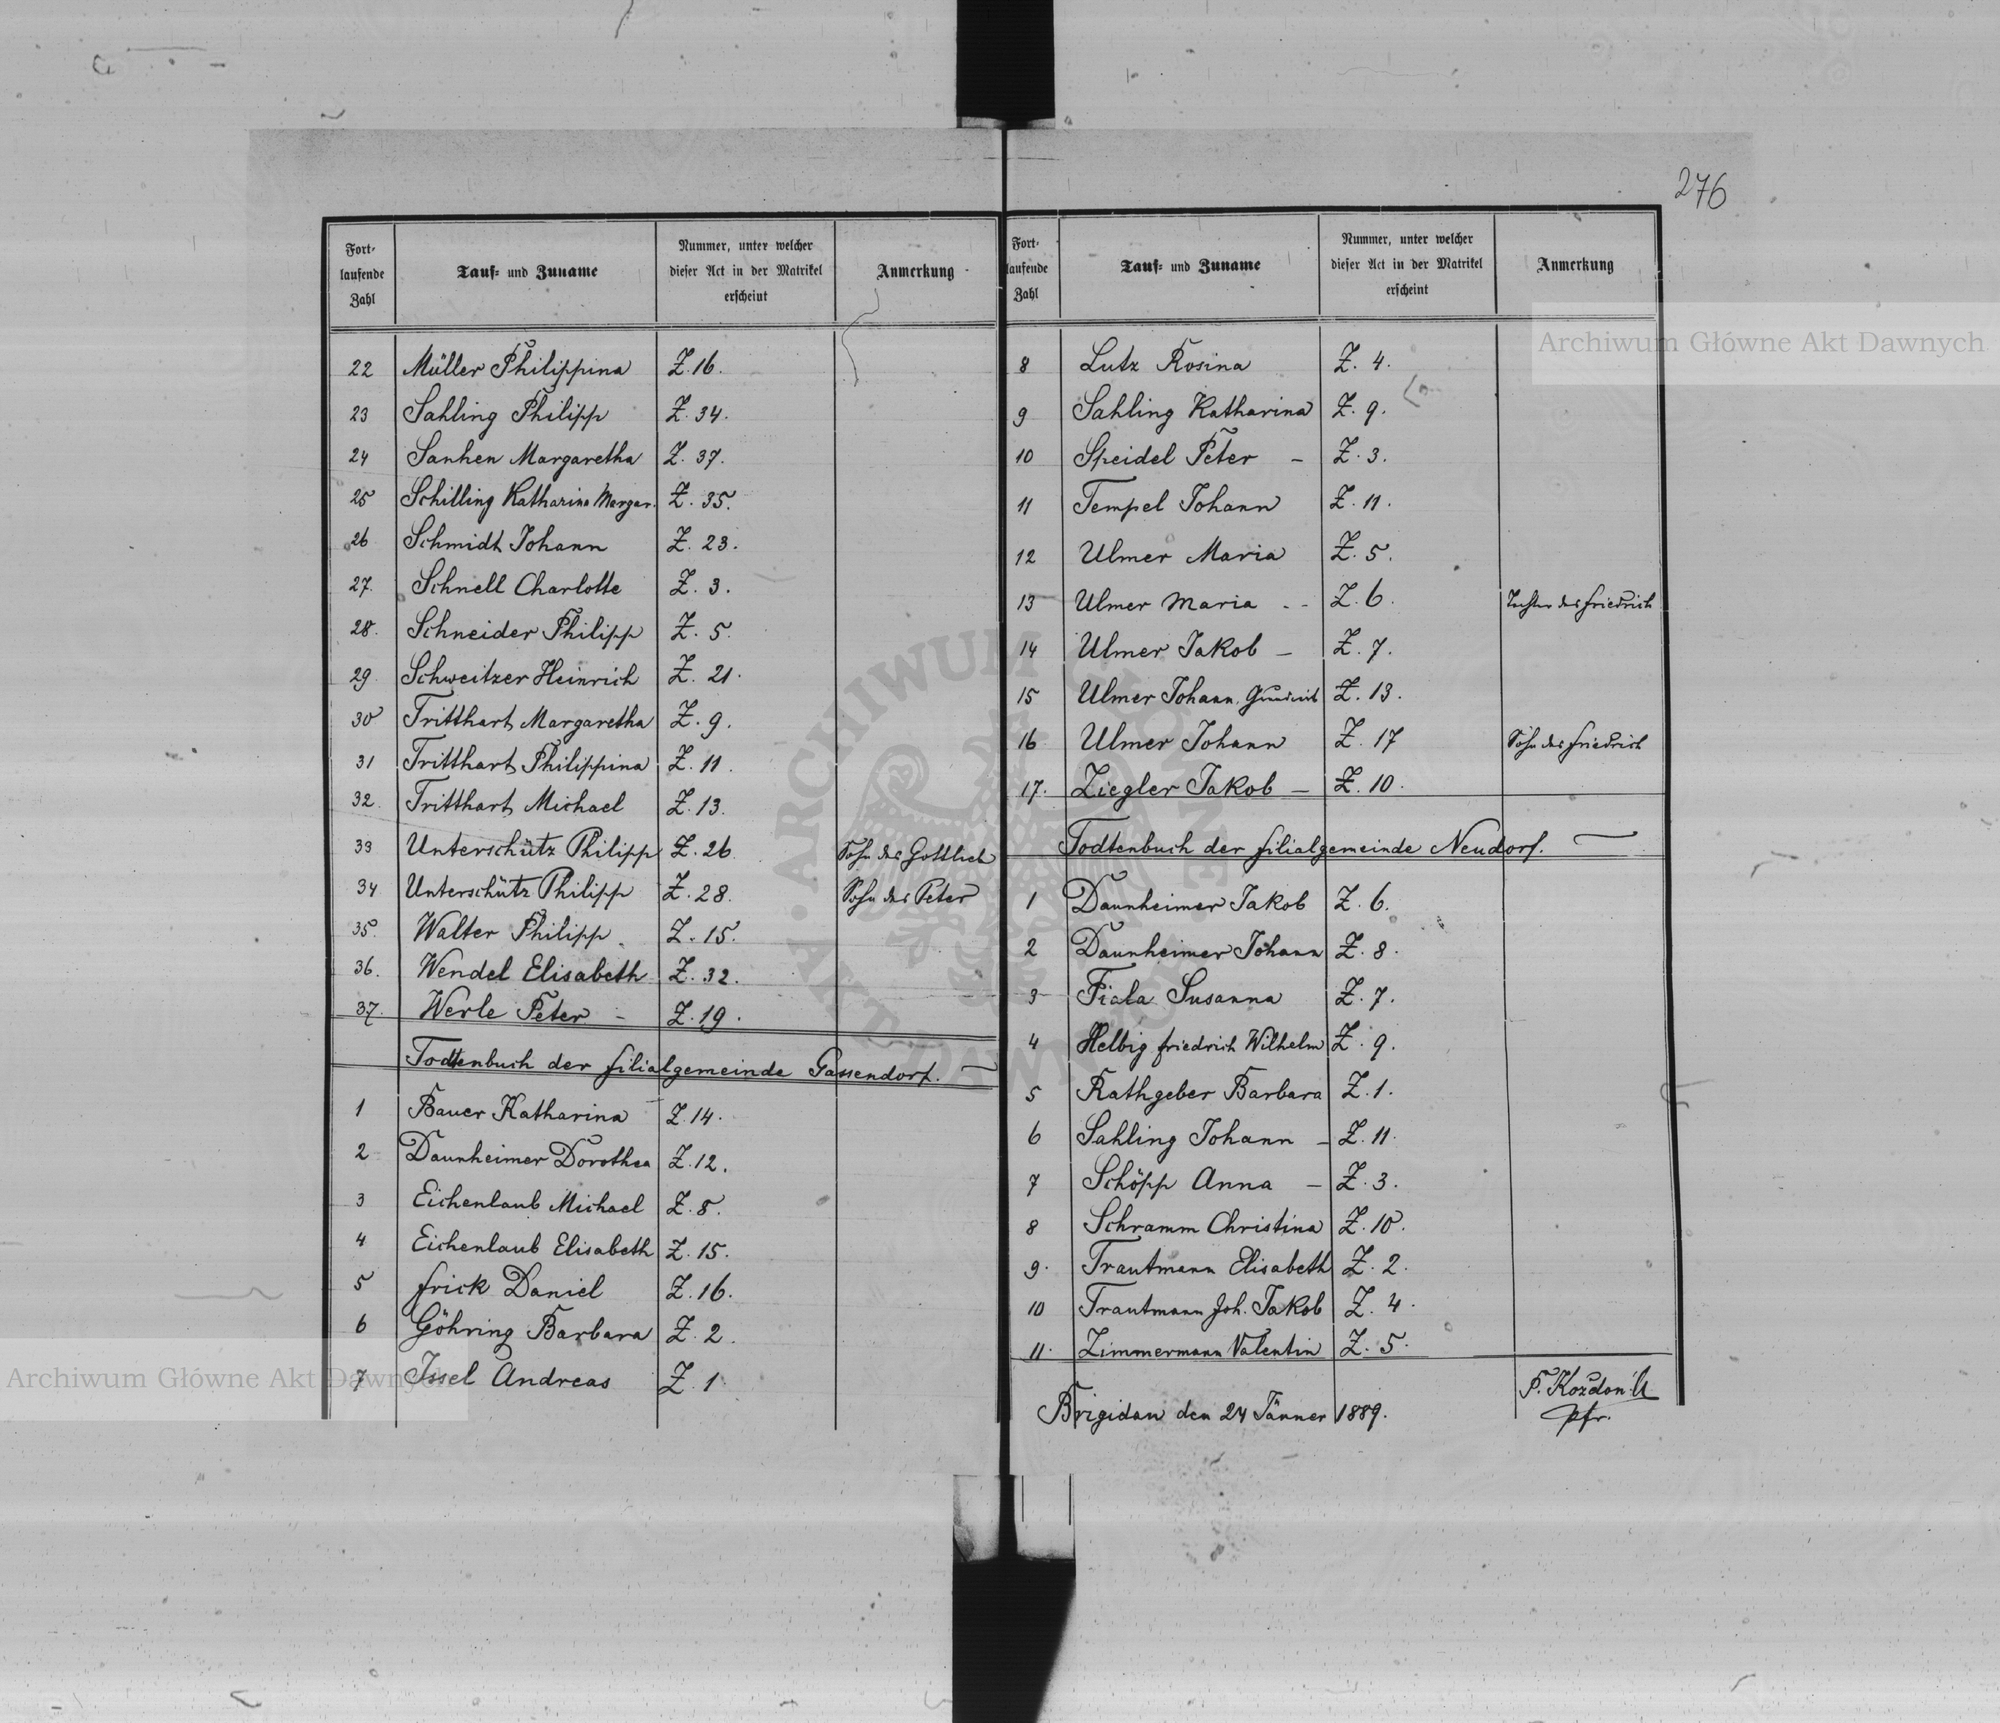 276
Fort-
laufende
Zahl
Tauf- und Zuname
Nummer, unter welcher
dieser Act in der Matrikel
erscheint
Anmerkung
22 Müller Philippina Z. 16.
23 Sahling Philipp Z. 34.
24 Sanhen Margaretha Z. 37.
25 Schilling Katharina Margar. Z. 35.
26 Schmidt Johann Z. 23.
27. Schnell Charlotte Z. 3.
28. Schneider Philipp Z. 5.
29 Schweitzer Heinrich Z. 21.
30 Tritthart Margaretha Z. 9.
31 Tritthart Philippina Z. 11.
32. Tritthart Michael Z. 13.
33 Unterschütz Philipp Z. 26. Sohn des Gottlieb
34 Unterschütz Philipp Z. 28. Sohn des Peter
35. Walter Philipp Z. 15.
36. Wendel Elisabeth Z. 32.
37. Werle Peter – Z. 19.
Todtenbuch der Filialgemeinde Gassendorf. —
1 Bauer Katharina Z. 14.
2 Daunheimer Dorothea Z. 12.
3 Eichenlaub Michael Z. 8.
4 Eichenlaub Elisabeth Z. 15.
5 Frick Daniel Z. 16.
6 Göhring Barbara Z. 2.
7 Issel Andreas Z. 1.
Fort-
laufende
Zahl
Tauf- und Zuname
Nummer, unter welcher
dieser Act in der Matrikel
erscheint
Anmerkung
8 Lutz Rosina Z. 4.
9 Sahling Katharina Z. 9.
10 Speidel Peter – Z. 3.
11 Tempel Johann Z. 11.
12 Ulmer Maria Z. 5.
13 Ulmer Maria - - Z. 6. Tochter des Friedrich
14 Ulmer Jakob – Z. 7.
15 Ulmer Johann Z. 13.
16 Ulmer Johann Z. 17 Sohn des Friedrich
17. Ziegler Jakob – Z. 10.
Todtenbuch der Filialgemeinde Neudorf. —
1 Daunheimer Jakob Z. 6.
2 Daunheimer Johann Z. 8.
3 Fiala Susanna Z. 7.
4 Helbig Friedrich Wilhelm Z. 9.
5 Rathgeber Barbara Z. 1.
6 Sahling Johann – Z. 11.
7 Schöpp Anna – Z. 3.
8 Schramm Christina Z. 10.
9. Trautmann Elisabeth Z. 2.
10 Trautmann Joh. Jakob Z. 4.
11. Zimmermann Valentin Z. 5.
Brigidau den 24 Jänner 1889.
F. Kozdon
Pfr.
Archiwum Główne Akt Dawnych
Archiwum Główne Akt Dawnych
ARCHIWUM GŁÓWNE AKT DAWNYCH